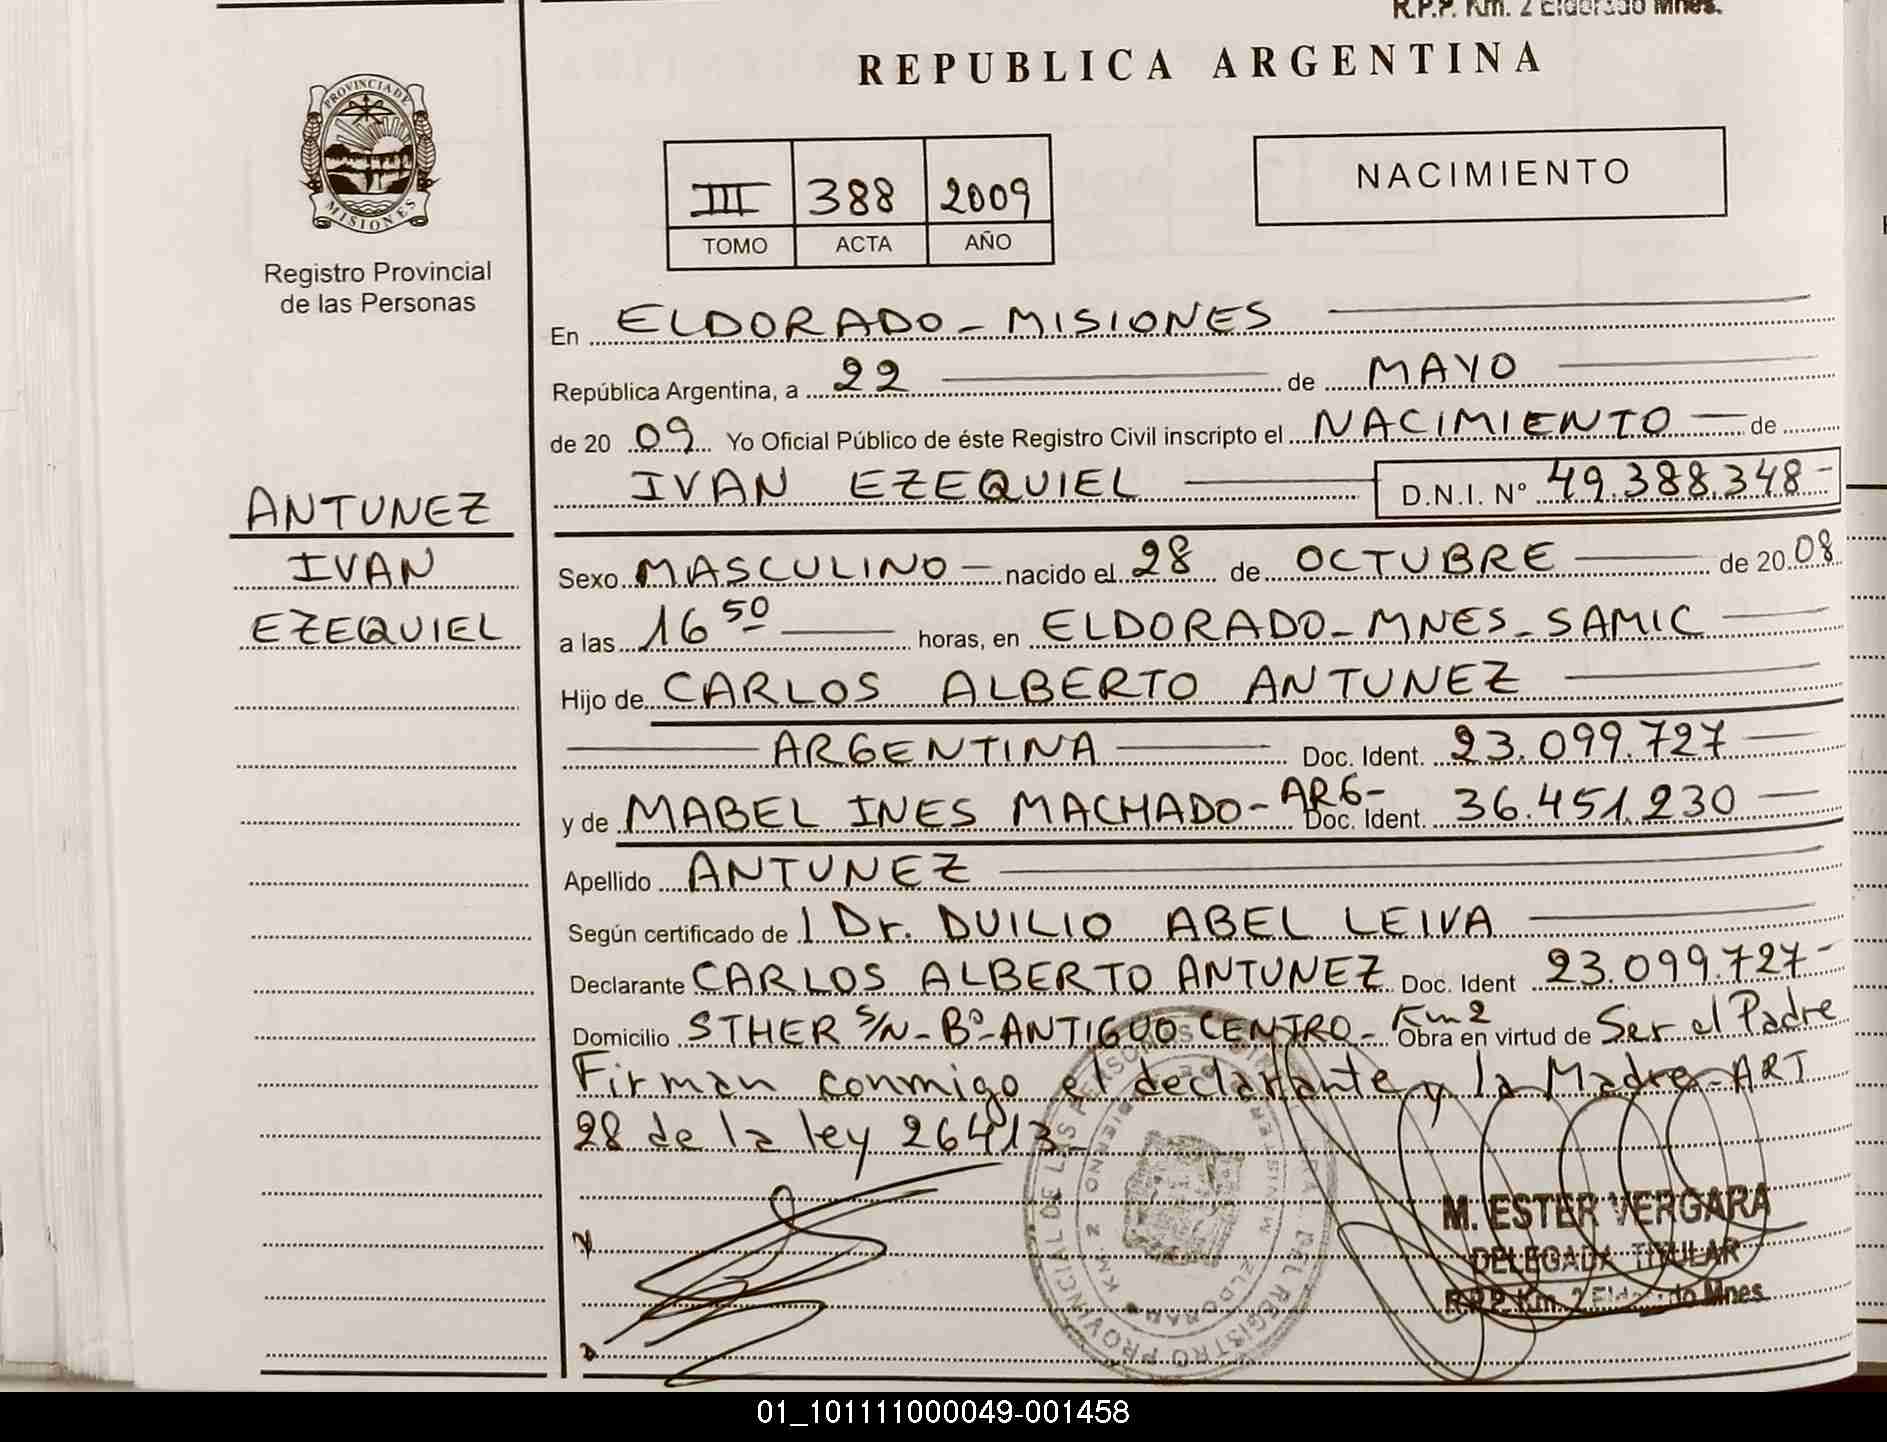 R.P.P. Km. 2 Eldorado Mnes.
REPUBLICA ARGENTINA
PROVINCIA DE
MISIONES
Registro Provincial
de las Personas
III 388 2009
TOMO ACTA AÑO
NACIMIENTO
En ELDORADO - MISIONES
República Argentina, a 22 de MAYO
de 20 09 Yo Oficial Público de éste Registro Civil inscripto el NACIMIENTO de
IVAN EZEQUIEL D.N.I. Nº 49.388.348-
ANTUNEZ
IVAN
EZEQUIEL
Sexo MASCULINO - nacido el 28 de OCTUBRE de 20 08
a las 16 50 horas, en ELDORADO - MNES - SAMIC
Hijo de CARLOS ALBERTO ANTUNEZ
ARGENTINA Doc. Ident. 23.099.727
y de MABEL INES MACHADO - ARG- Doc. Ident. 36.451.230
Apellido ANTUNEZ
Según certificado de Dr. DUILIO ABEL LEIVA
Declarante CARLOS ALBERTO ANTUNEZ Doc. Ident 23.099.727-
Domicilio STHER S/N - Bº - ANTIGUO CENTRO - Km 2 Obra en virtud de Ser el Padre
Firman conmigo el declarante y la Madre - ART
28 de la ley 26413-
M. ESTER VERGARA
DELEGADA TITULAR
R.P.P. Km. 2 Eldorado Mnes.
01_101111000049-001458